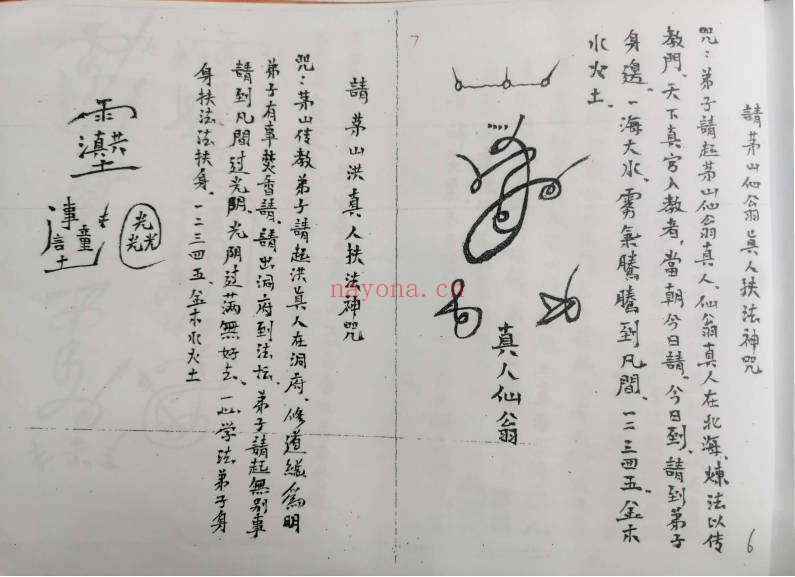 請茅山仙翁真人扶法神咒
咒：弟子請起茅山仙翁真人、仙翁真人在北海、煉法以传
教門、天下真宫入教者、當朝今日請、今日到、請到弟子
身邊、一海大水、雾氣騰騰到凡間、一二三四五、金木
水火土、
真人仙翁
6
7
請茅山洪真人扶法神咒
咒：茅山传教弟子請起洪真人在洞府、修道繼為明
弟子有事焚香請、請出洞府到法坛、弟子請起無别事
請到凡間过光阴、光阴过满無好去、一心学法弟子身
身扶法法扶身、一二三四五、金木水火土
nayona.cn